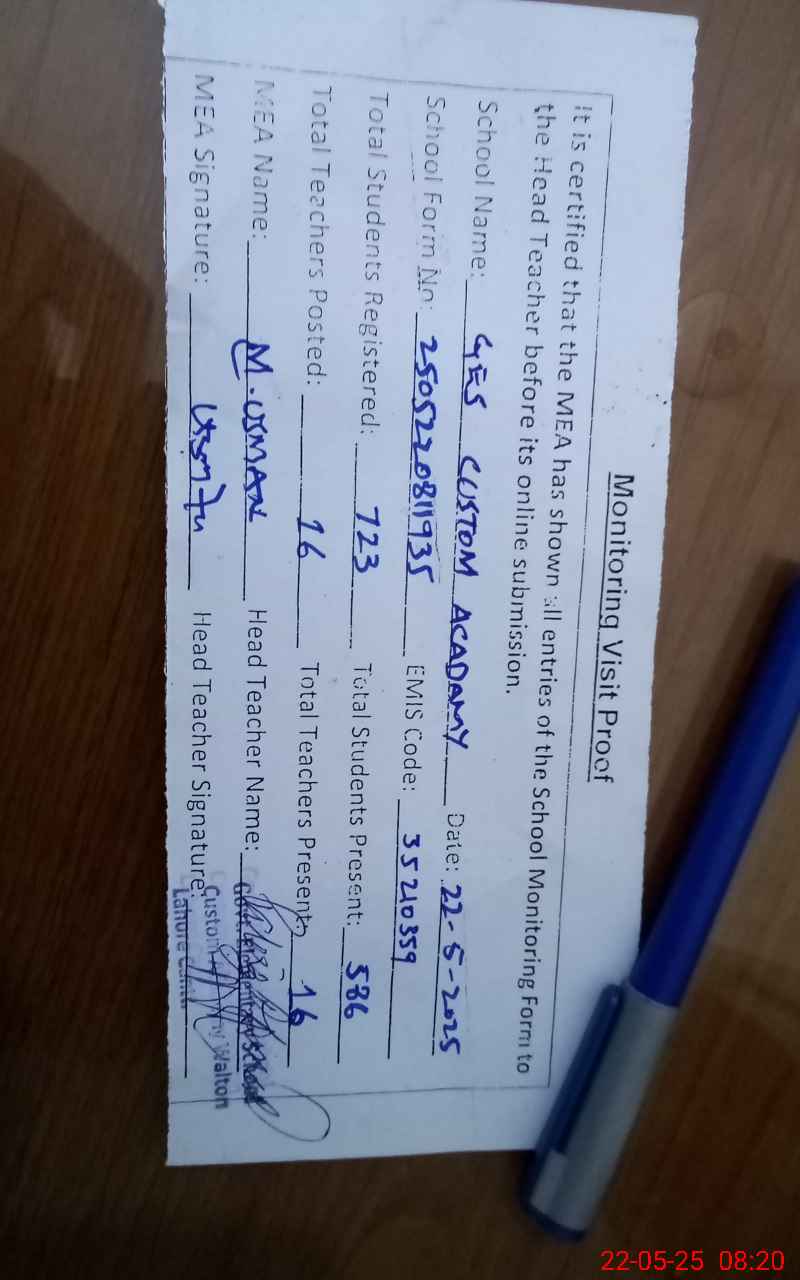 Monitoring Visit Proof
It is certified that the MEA has shown all entries of the School Monitoring Form to
the Head Teacher before its online submission.
School Name: GES CUSTOM ACADAMY Date: 22-5-2025
School Form No: 2505220811935 EMIS Code: 35210359
Total Students Registered: 723 Total Students Present: 586
Total Teachers Posted: 16 Total Teachers Present: 16
MEA Name: M. USMAN Head Teacher Name:
MEA Signature: Head Teacher Signature:
Govt. School
Custom Walton
Lahore Cantt
22-05-25 08:20